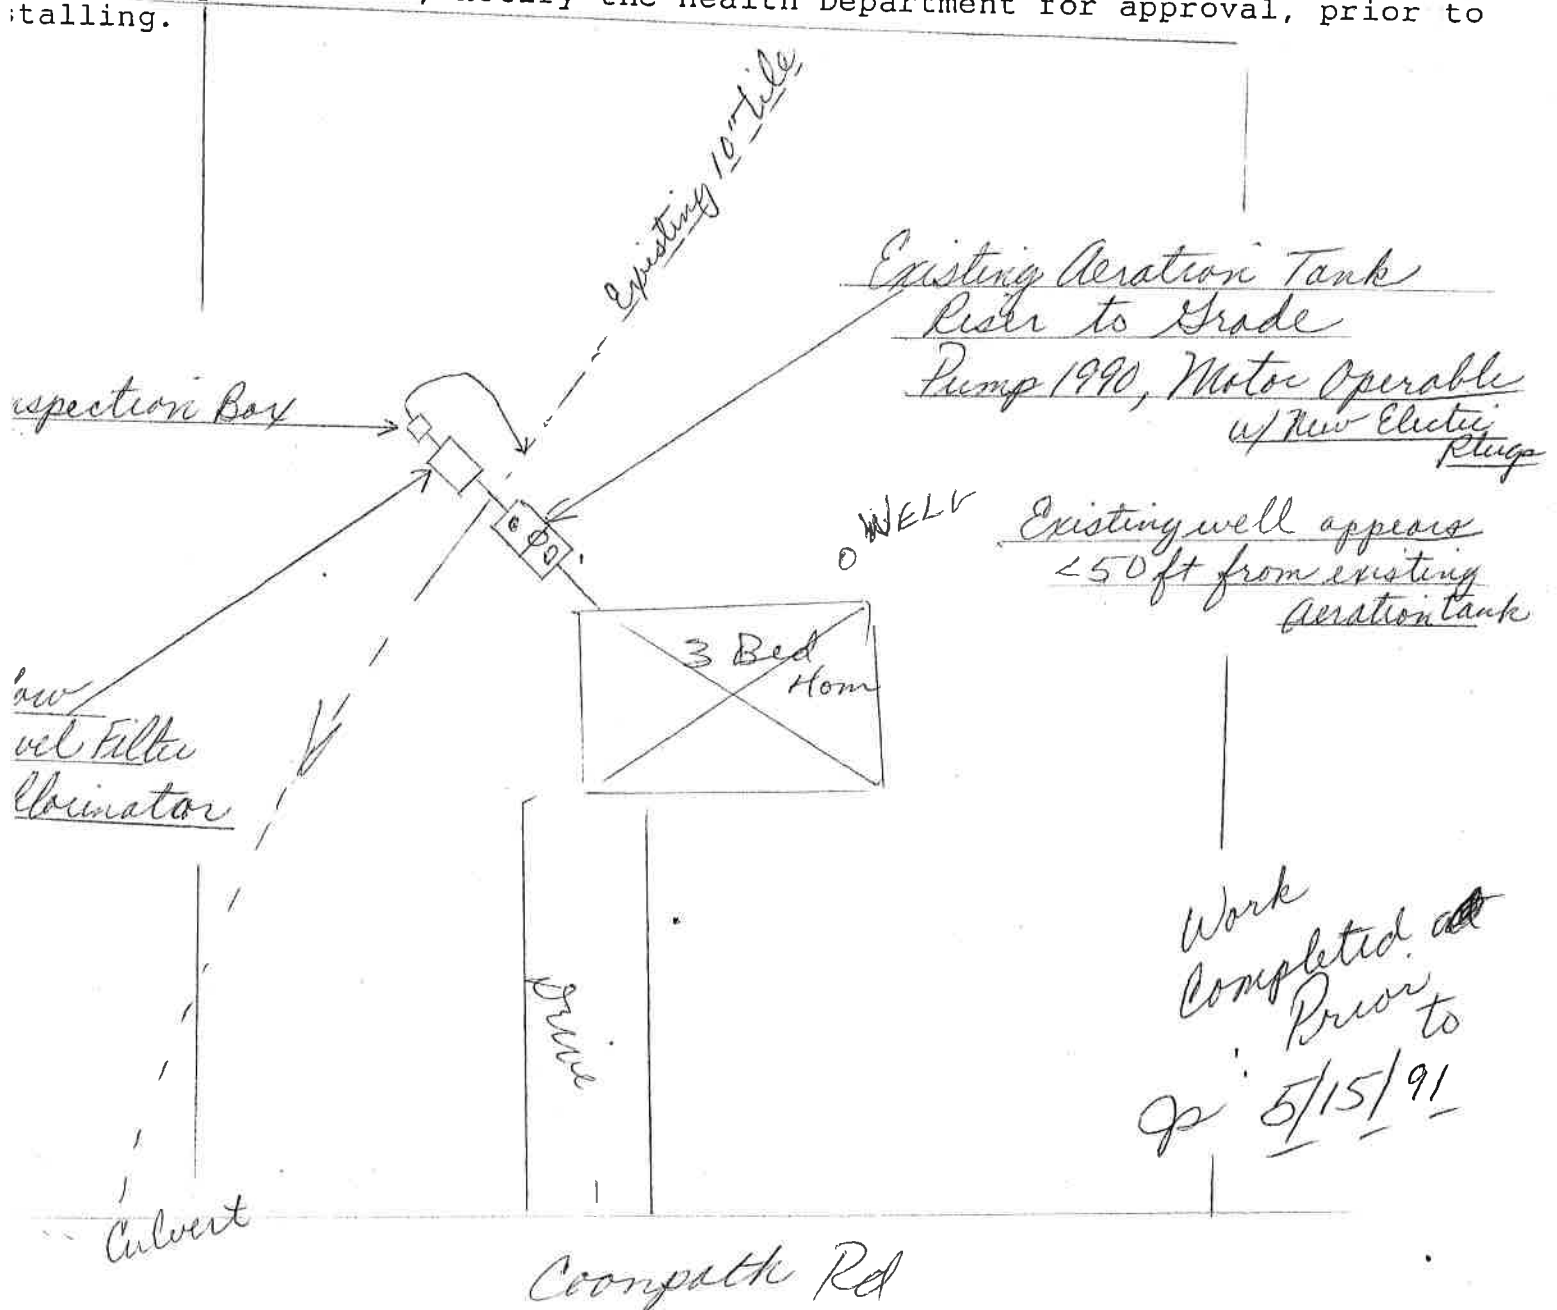 notify the Health Department for approval, prior to
stalling.
Existing 10" tile
Existing Aeration Tank
Riser to Grade
Pump 1990, Motor Operable
w/ New Electric
Plugs
nspection Box
WELL
Existing well appears
<50 ft from existing
aeration tank
3 Bed
Hom
vel Filter
Clorinator
Work
Completed
Prior
to
5/15/91
Drive
Culvert
Coonpath Rd